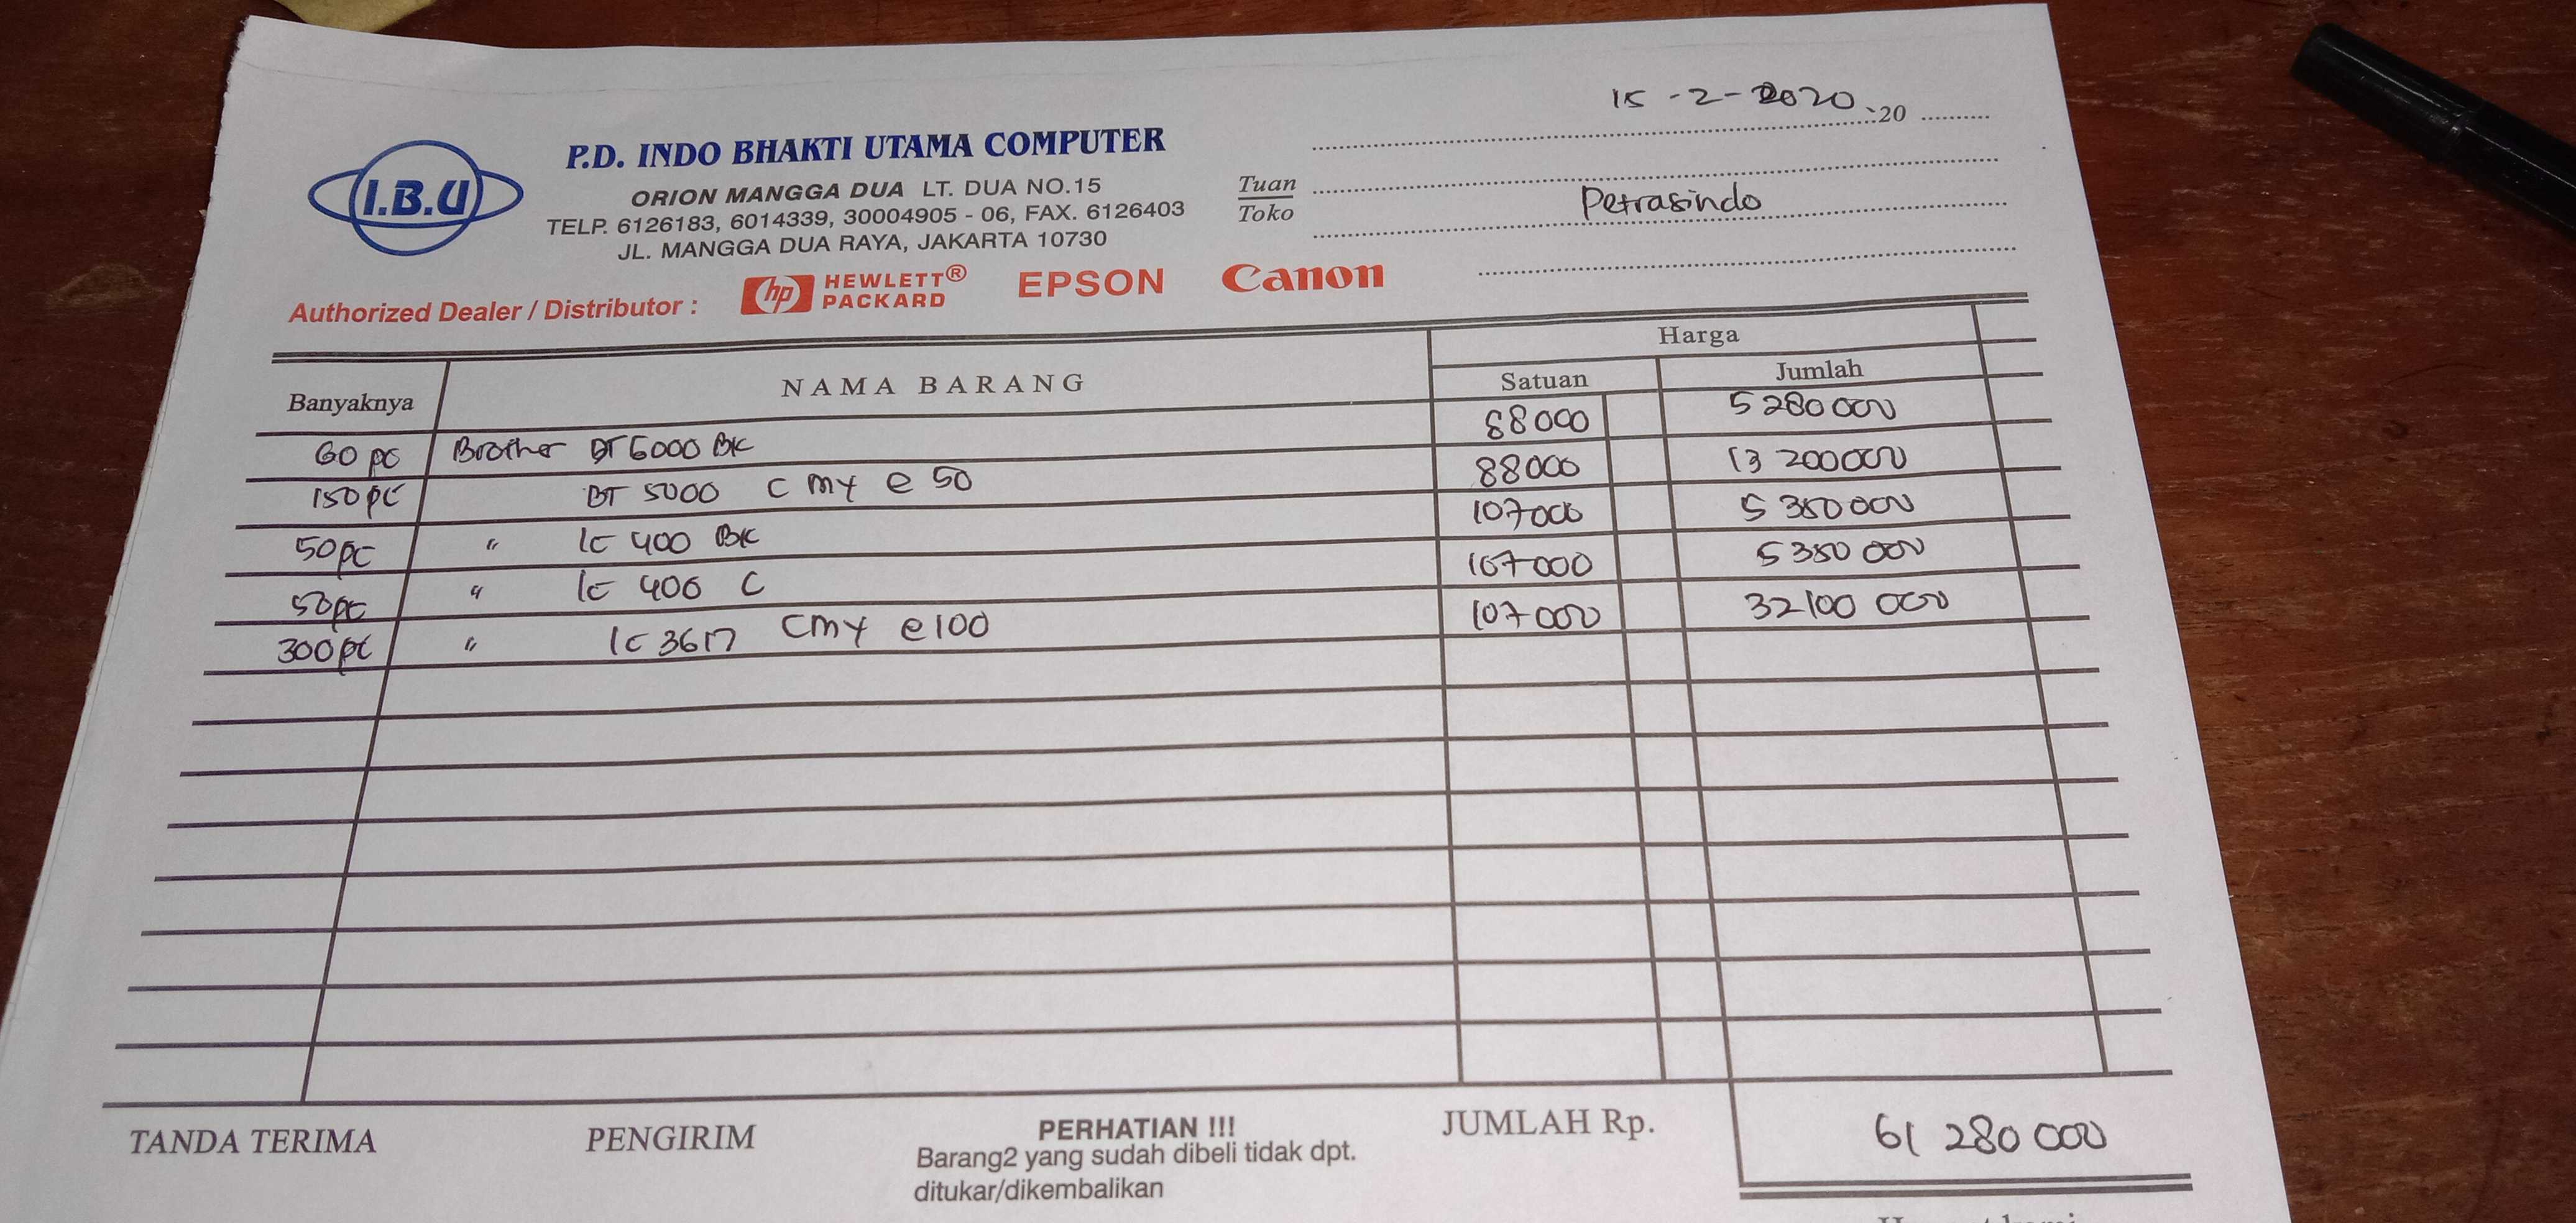 15-2-2020
20
I.B.U
P.D. INDO BHAKTI UTAMA COMPUTER
ORION MANGGA DUA LT. DUA NO.15
TELP. 6126183, 6014339, 30004905 - 06, FAX. 6126403
JL. MANGGA DUA RAYA, JAKARTA 10730
Tuan
Toko
Petrasindo
Authorized Dealer / Distributor : hp HEWLETT® PACKARD EPSON Canon
Banyaknya NAMA BARANG Harga
Satuan Jumlah
60 pc Brother BT 6000 BK 88000 5280000
150 pc BT 5000 C M Y @ 50 88000 13 200000
50 pc " lc 400 BK 107000 5 350000
50 pc " lc 400 C 107000 5350 000
300 pc " lc 3617 CMY @ 100 107000 32100 000
TANDA TERIMA PENGIRIM PERHATIAN !!! JUMLAH Rp. 61 280 000
Barang2 yang sudah dibeli tidak dpt.
ditukar/dikembalikan